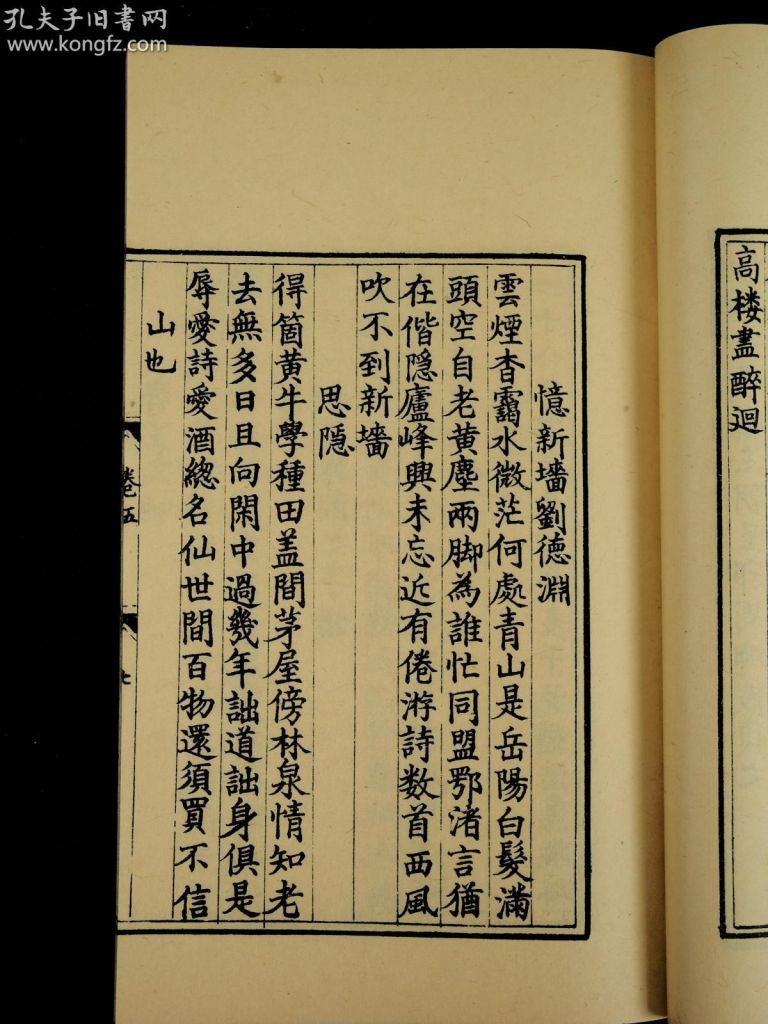 孔夫子旧书网
www.kongfz.com
高楼盡醉迴
憶新墻劉德淵
雲煙杳靄水微茫何處青山是岳陽白髮滿
頭空自老黄塵兩脚為誰忙同盟鄂渚言猶
在偕隠廬峰興未忘近有倦游詩数首西風
吹不到新墻
思隠
得箇黄牛學種田盖間茅屋傍林泉情知老
去無多日且向閑中過幾年詘道詘身俱是
辱愛詩愛酒緫名仙世間百物還須買不信
山也
卷五
七